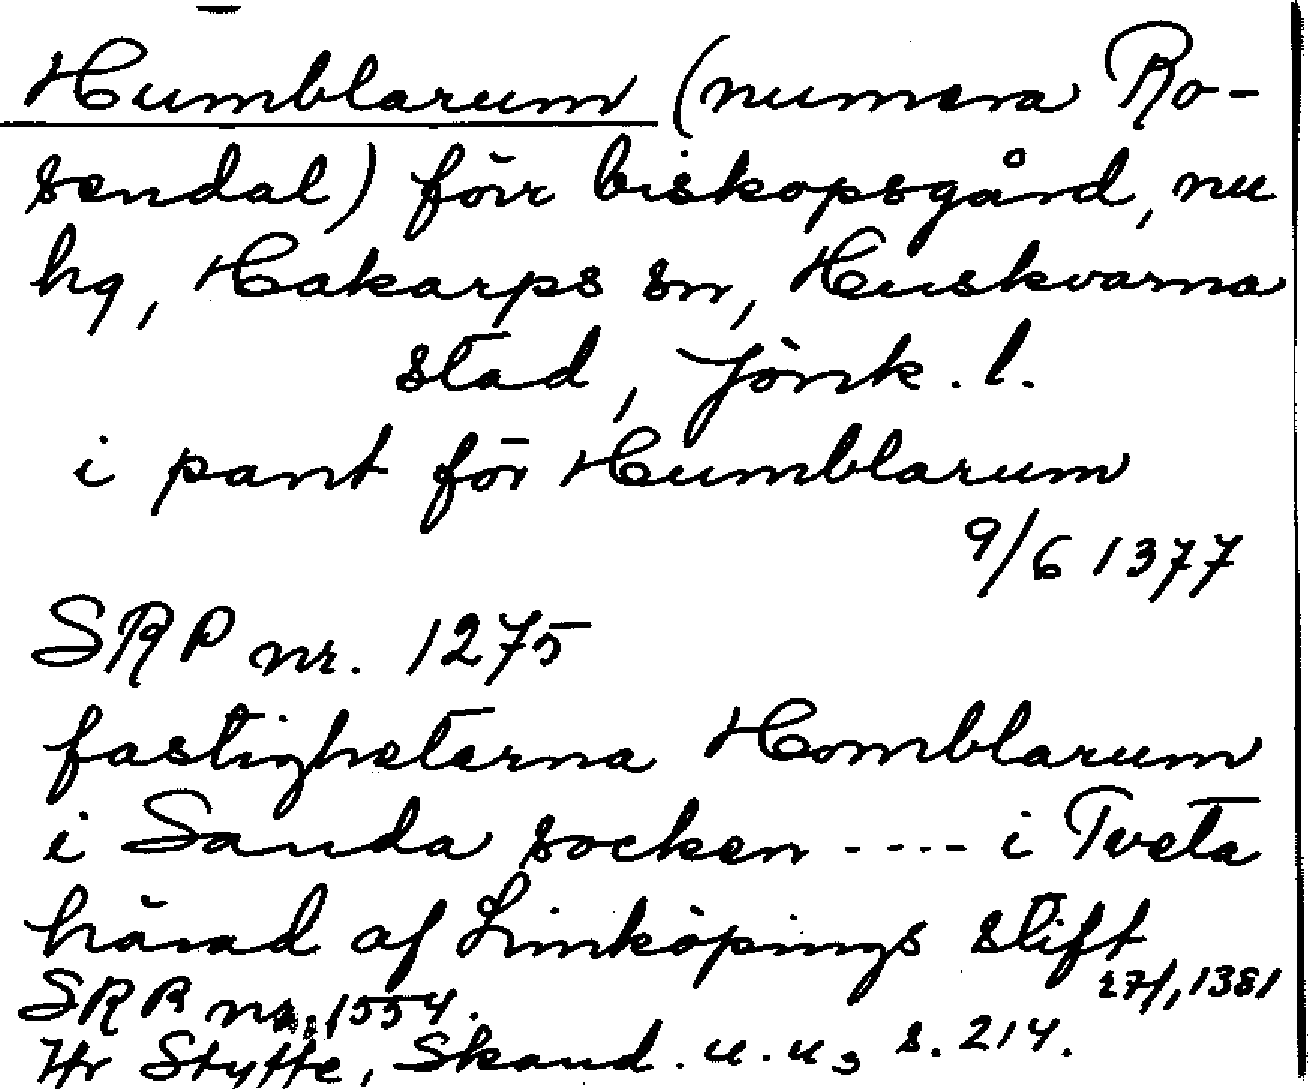 Humblarum (numera Ro-
sendal) förr biskopsgård, nu
hg, Hakarps sn, Huskvarna
stad, Jönk. l.
i pant för Humblarum
9/6 1377
SRP nr. 1275
fastigheterna Homblarum
i Sanda socken ---- i Tveta
härad af Linköpings stift
27/1 1381
SRP nr. 1554.
Hr Styffe, Skand. u. u3 s. 214.